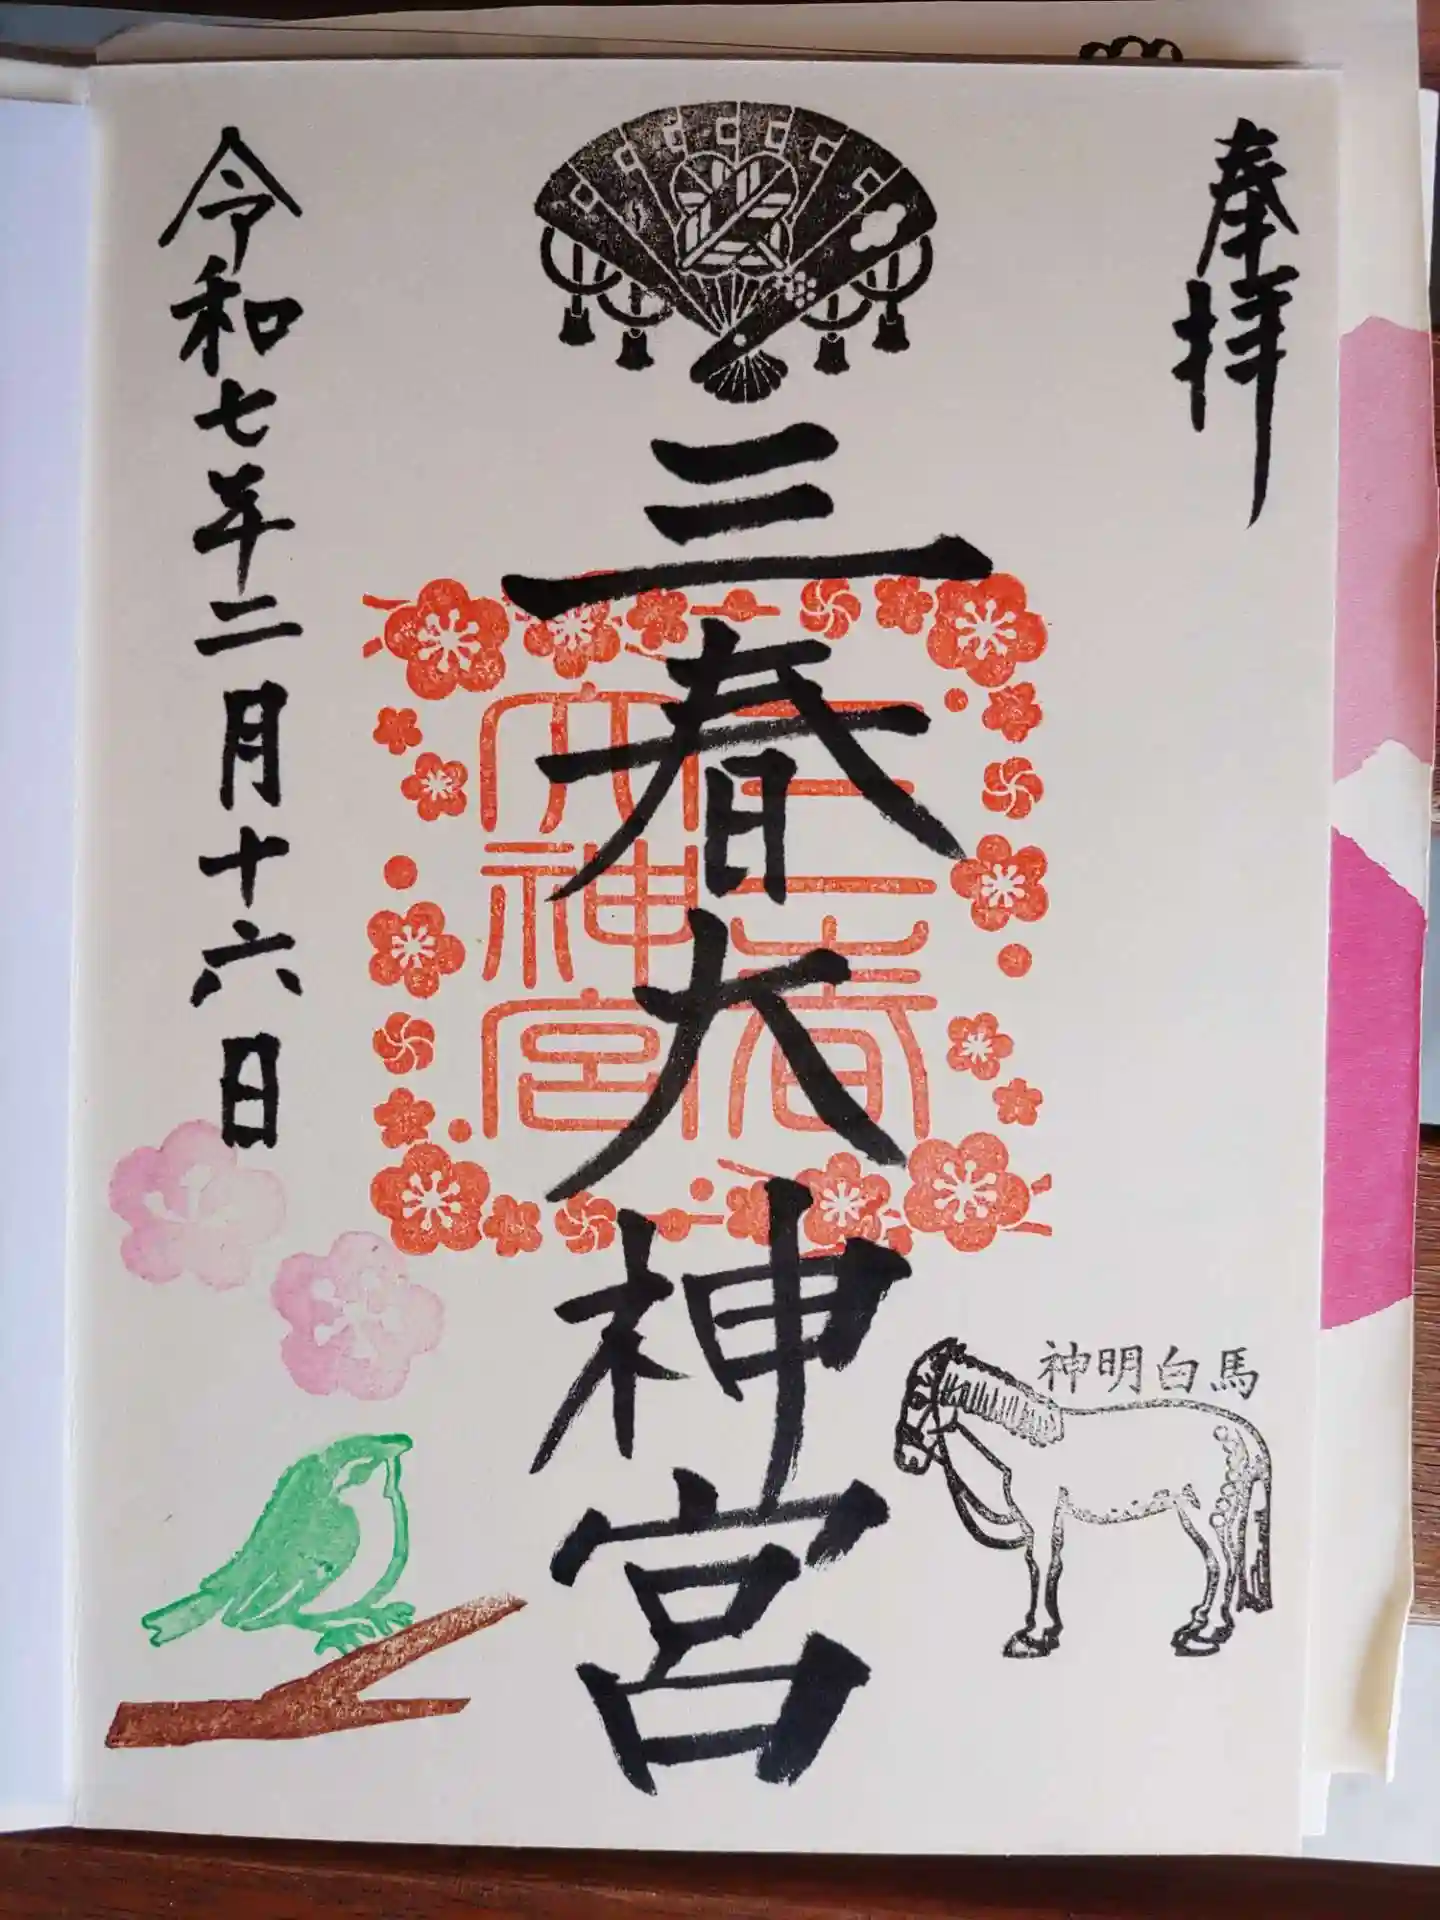 奉拝
三春大神宮
三春
大神宮
神明白馬
令和七年二月十六日